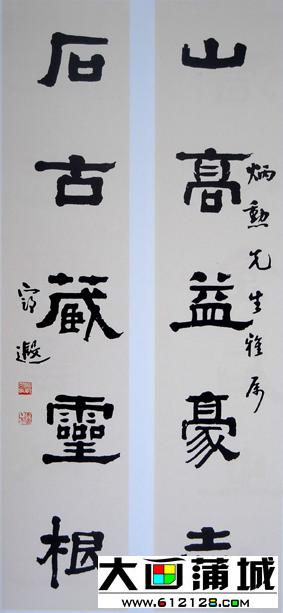 山高益豪
炳勲先生雅属
石古藏靈根
遐
大画蒲城
www.612128.com